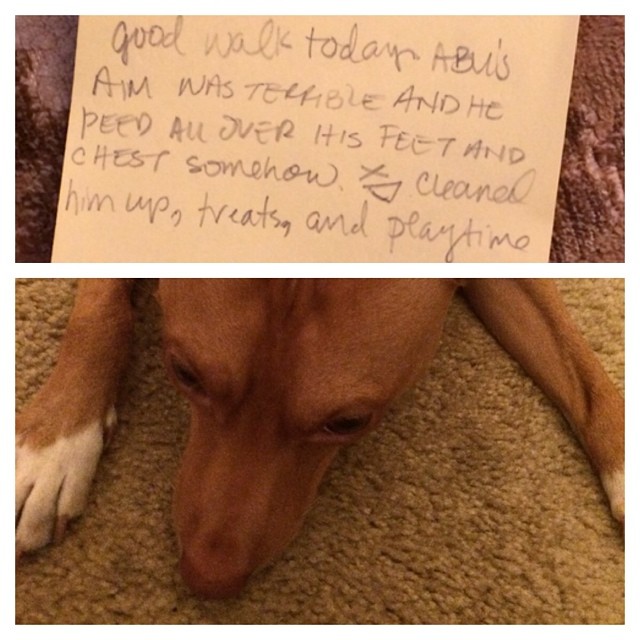 good walk today. ABU'S
AIM WAS TERRIBLE AND HE
PEED ALL OVER HIS FEET AND
CHEST somehow. XD cleaned
him up, treats, and playtime